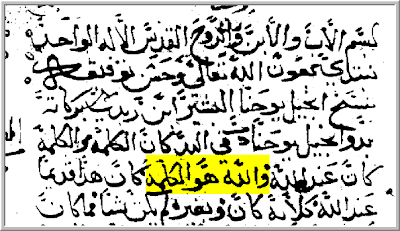 بسم الاب والابن والروح القدس الاله الواحد
نبتدي بعون الله تعالى وحسن توفيقه
بنسخ انجيل يوحنا ابن زبدي بركاته
بدو انجيل يوحنا في البد كان الكلمة والكلمة
كان عند الله والله هو الكلمة كان هذا قديما
عند الله كل به كان وبغيره لم يكن شيا مما كان